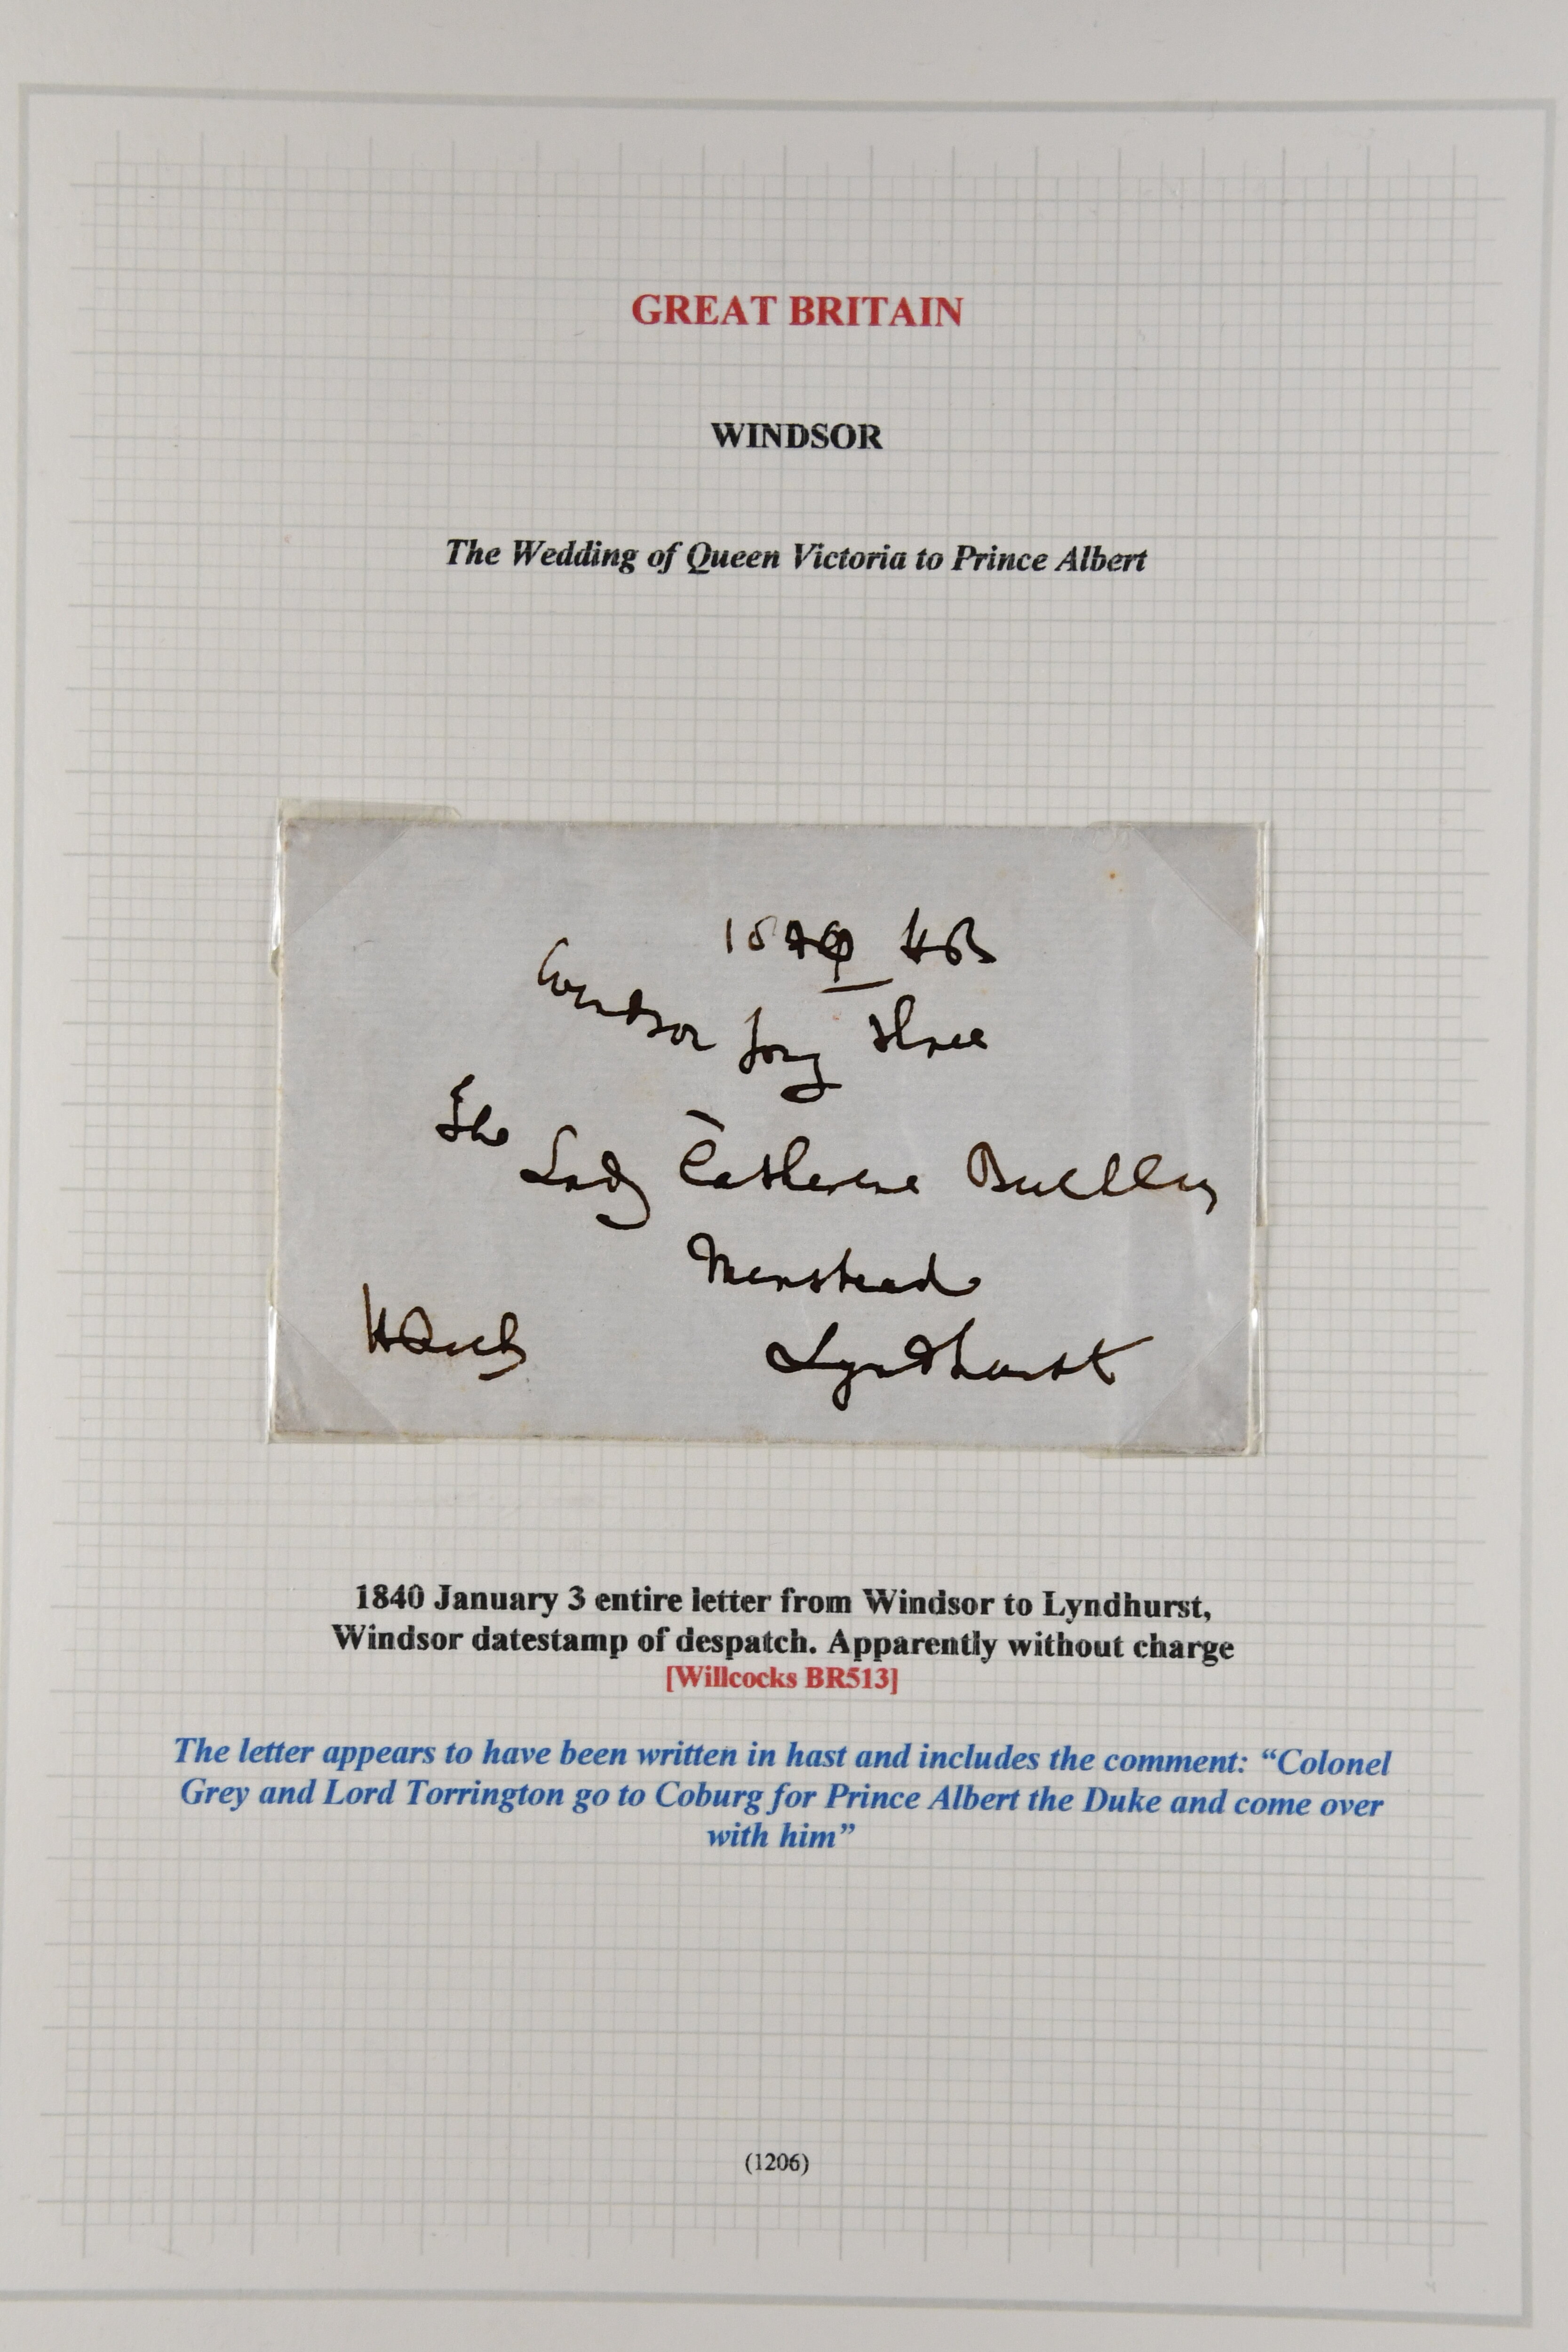 GREAT BRITAIN
WINDSOR
The Wedding of Queen Victoria to Prince Albert
1840 HB
Windsor Jany three
The
Lady Catherine
Minstead
Lyndhurst
1840 January 3 entire letter from Windsor to Lyndhurst,
Windsor datestamp of despatch. Apparently without charge
[Willcocks BR513]
The letter appears to have been written in hast and includes the comment: “Colonel
Grey and Lord Torrington go to Coburg for Prince Albert the Duke and come over
with him”
(1206)